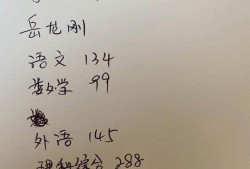 岳龙刚
语文 134
数学 99
外语 145
理科综合 288